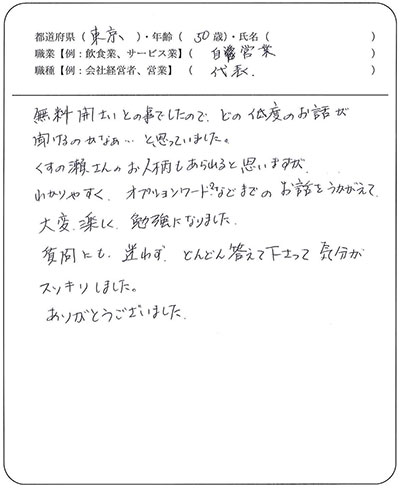 都道府県（東京、）・年齢（50歳）・氏名（　　　　　　　）
職業【例：飲食業、サービス業】（自営業）
職種【例：会社経営者、営業】（代表.）
無料開士いとの事でしたので、どの低度のお話が
聞けるのかなぁ…と思っていました。
くすの瀬さんのお人柄もあられると思いますが、
わかりやすく、オプションワードなどまでのお話をうかがえて、
大変、楽しく、勉強になりました。
質問にも、迷わず、どんどん答えて下さって気分が
スッキリしました。
ありがとうございました.